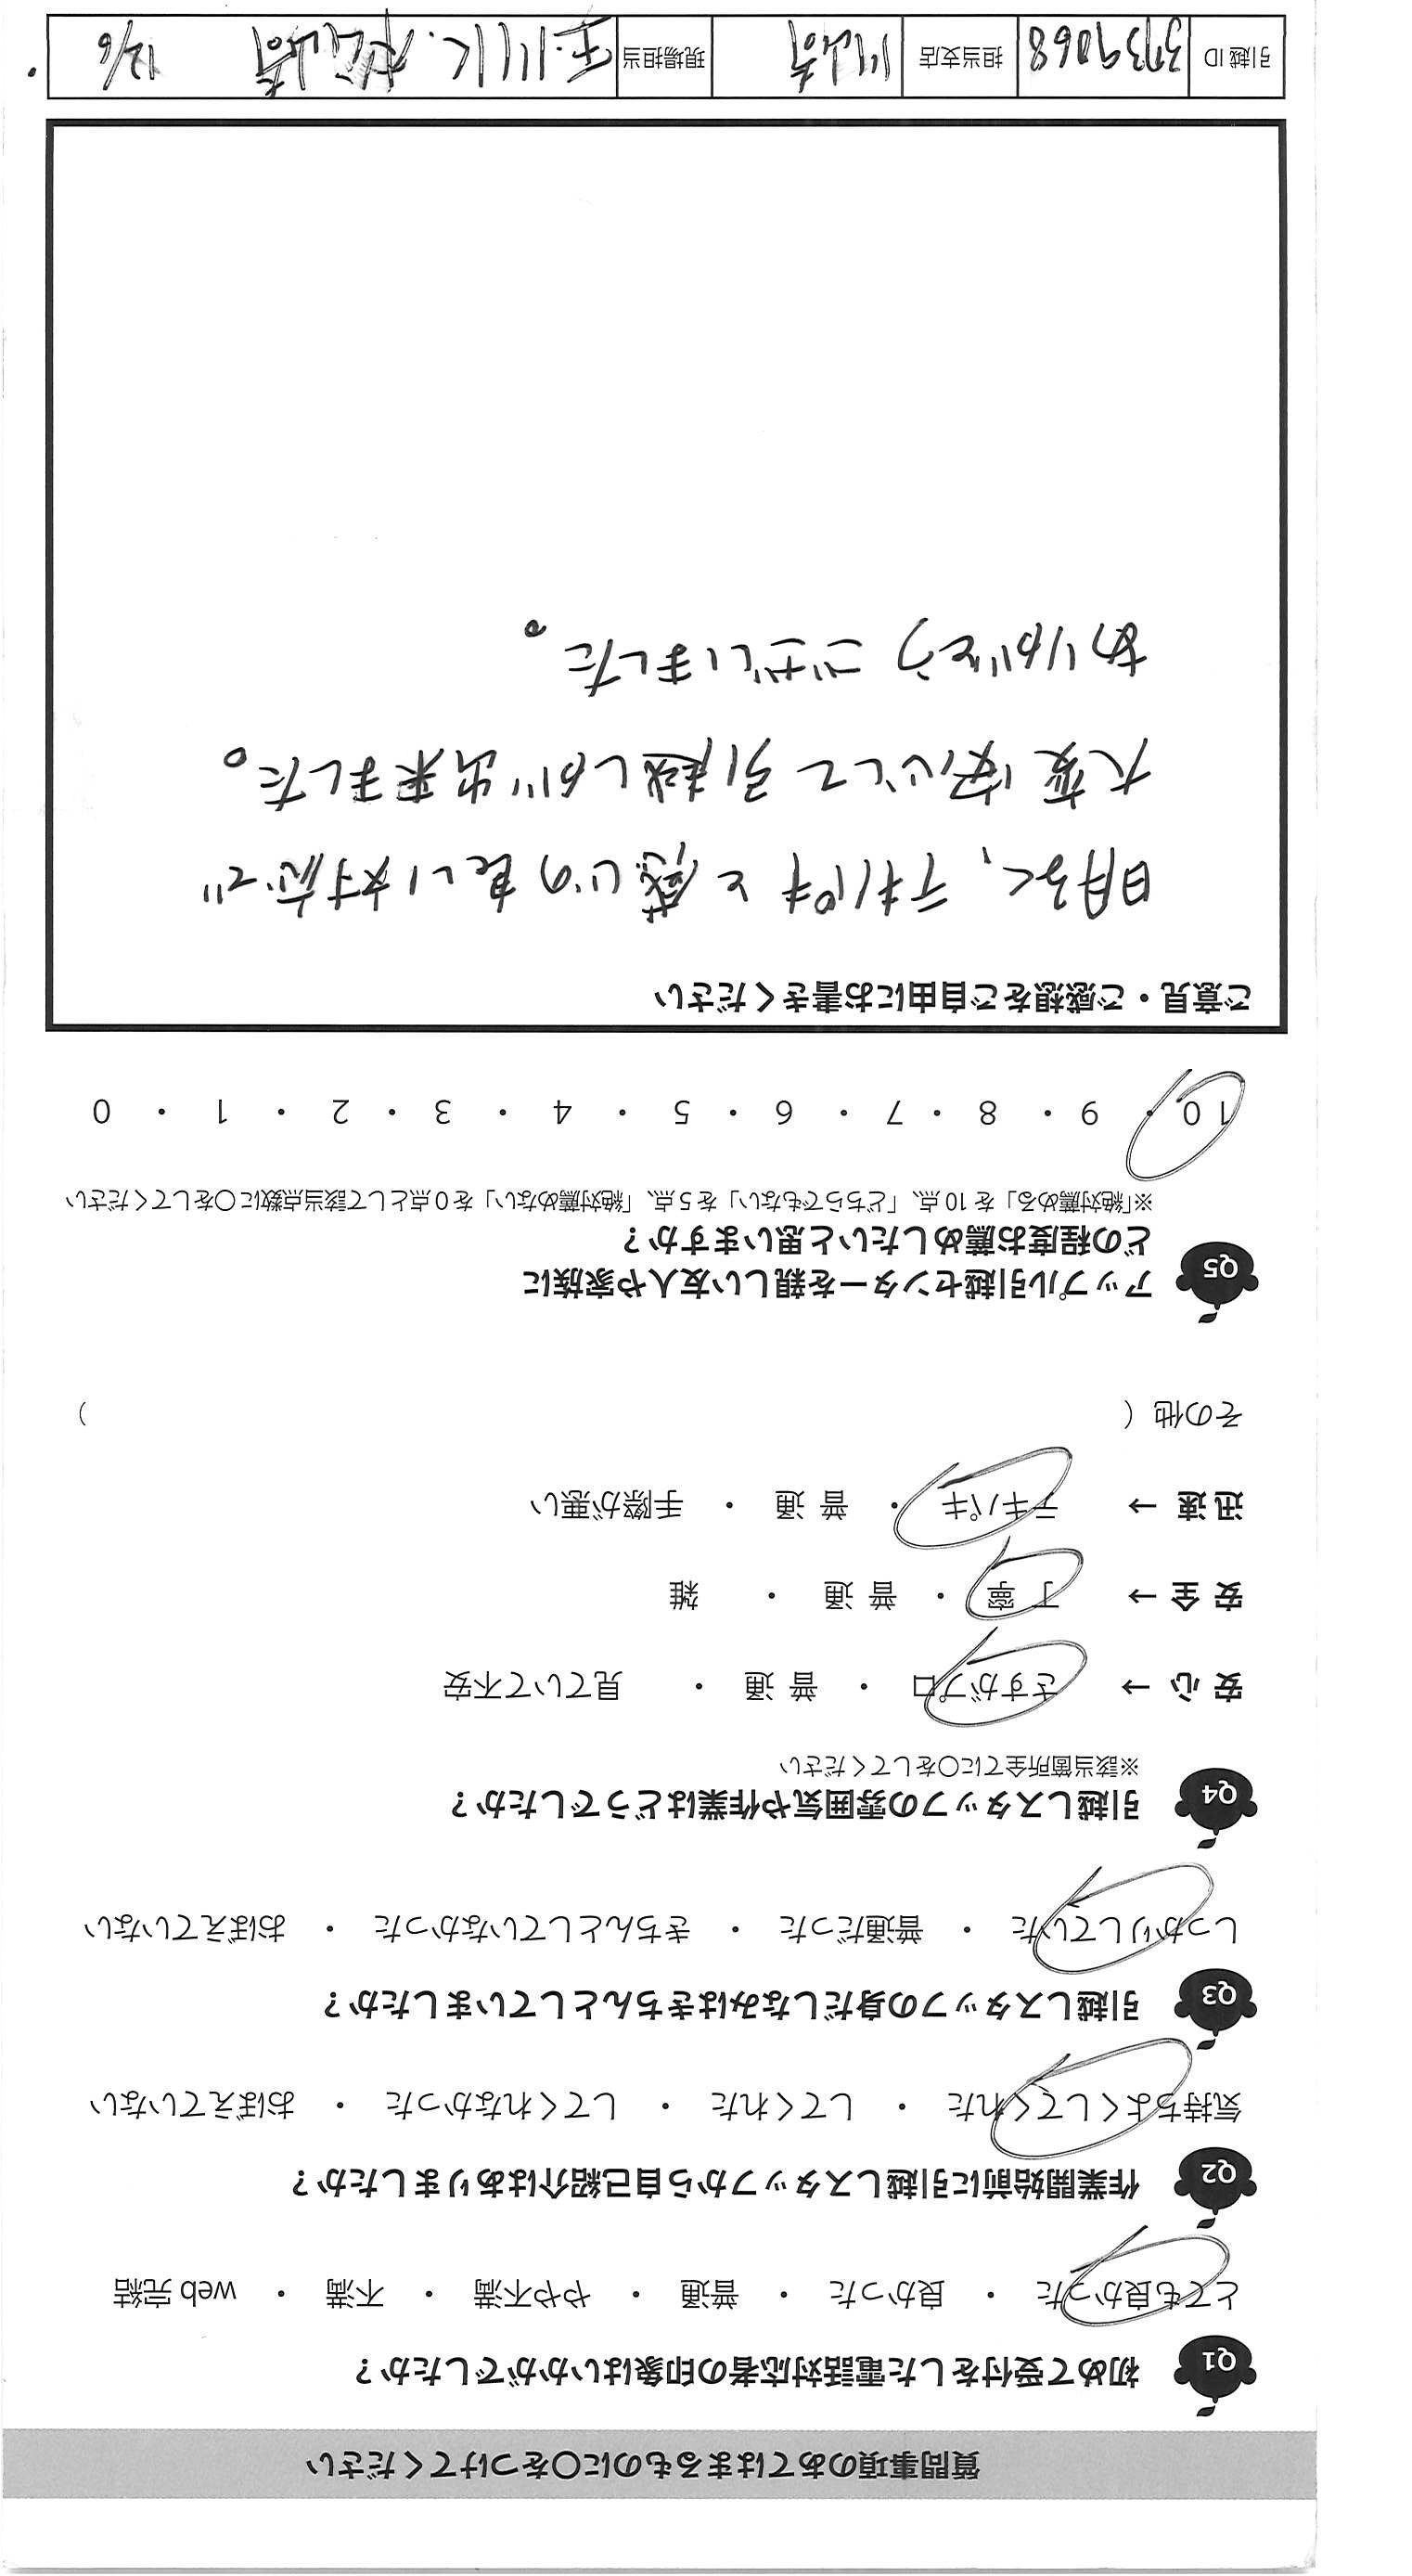 質問事項のあてはまるものに○をつけてください
Q1 初めて受付をした電話対応者の印象はいかがでしたか？
とても良かった ・ 良かった ・ 普通 ・ やや不満 ・ 不満 ・ web 完結
Q2 作業開始前に引越しスタッフから自己紹介はありましたか？
気持ちよくしてくれた ・ してくれた ・ してくれなかった ・ おぼえていない
Q3 引越しスタッフの身だしなみはきちんとしていましたか？
しっかりしていた ・ 普通だった ・ きちんとしていなかった ・ おぼえていない
Q4 引越しスタッフの雰囲気や作業はどうでしたか？
※該当箇所全てに○をしてください
安 心 → さすがプロ ・ 普 通 ・ 見ていて不安
安 全 → 丁 寧 ・ 普 通 ・ 雑
迅 速 → テキパキ ・ 普 通 ・ 手際が悪い
その他（ ）
Q5 アップル引越センターを親しい友人や家族に
どの程度お薦めしたいと思いますか？
※「絶対薦める」を 10 点、「どちらでもない」を 5 点、「絶対薦めない」を 0 点として該当点数に○をしてください
10 ・ 9 ・ 8 ・ 7 ・ 6 ・ 5 ・ 4 ・ 3 ・ 2 ・ 1 ・ 0
ご意見・ご感想をご自由にお書きください
明るく、テキパキと感じの良い対応で
大変安心して引越しが出来ました。
ありがとうございました。
引越 ID 3739068 担当支店 川崎 現場担当 玉川K.松山崎 12/6